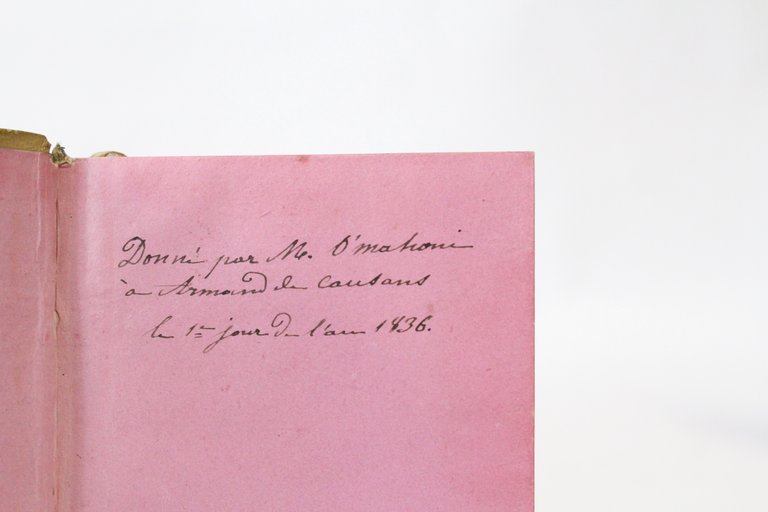 Donné par M. O'mahoni
à Armand de Causans
le 1er jour de l'an 1836.